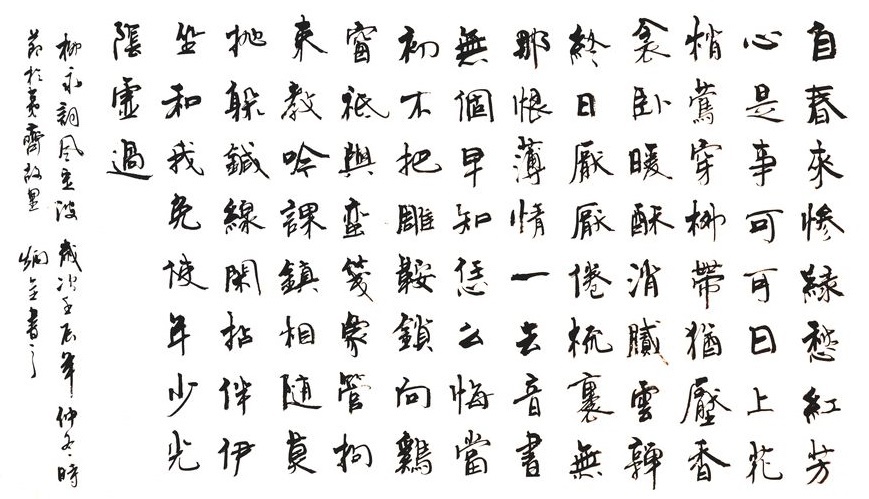 自春來慘緑愁紅芳
心是事可可日上花
梢鶯穿柳帶猶壓香
衾卧暖酥消膩雲嚲
終日厭厭倦梳裹無
那恨薄情一去音書
無個早知恁么悔當
初不把雕鞍鎖向鷄
窗祗與蛮箋象管拘
束教吟課鎮相隨莫
抛躲鍼線閑拈伴伊
坐和我免使年少光
陰虛過
柳永詞風定波 歲次壬辰年仲冬時
節於夷齊故里 書之